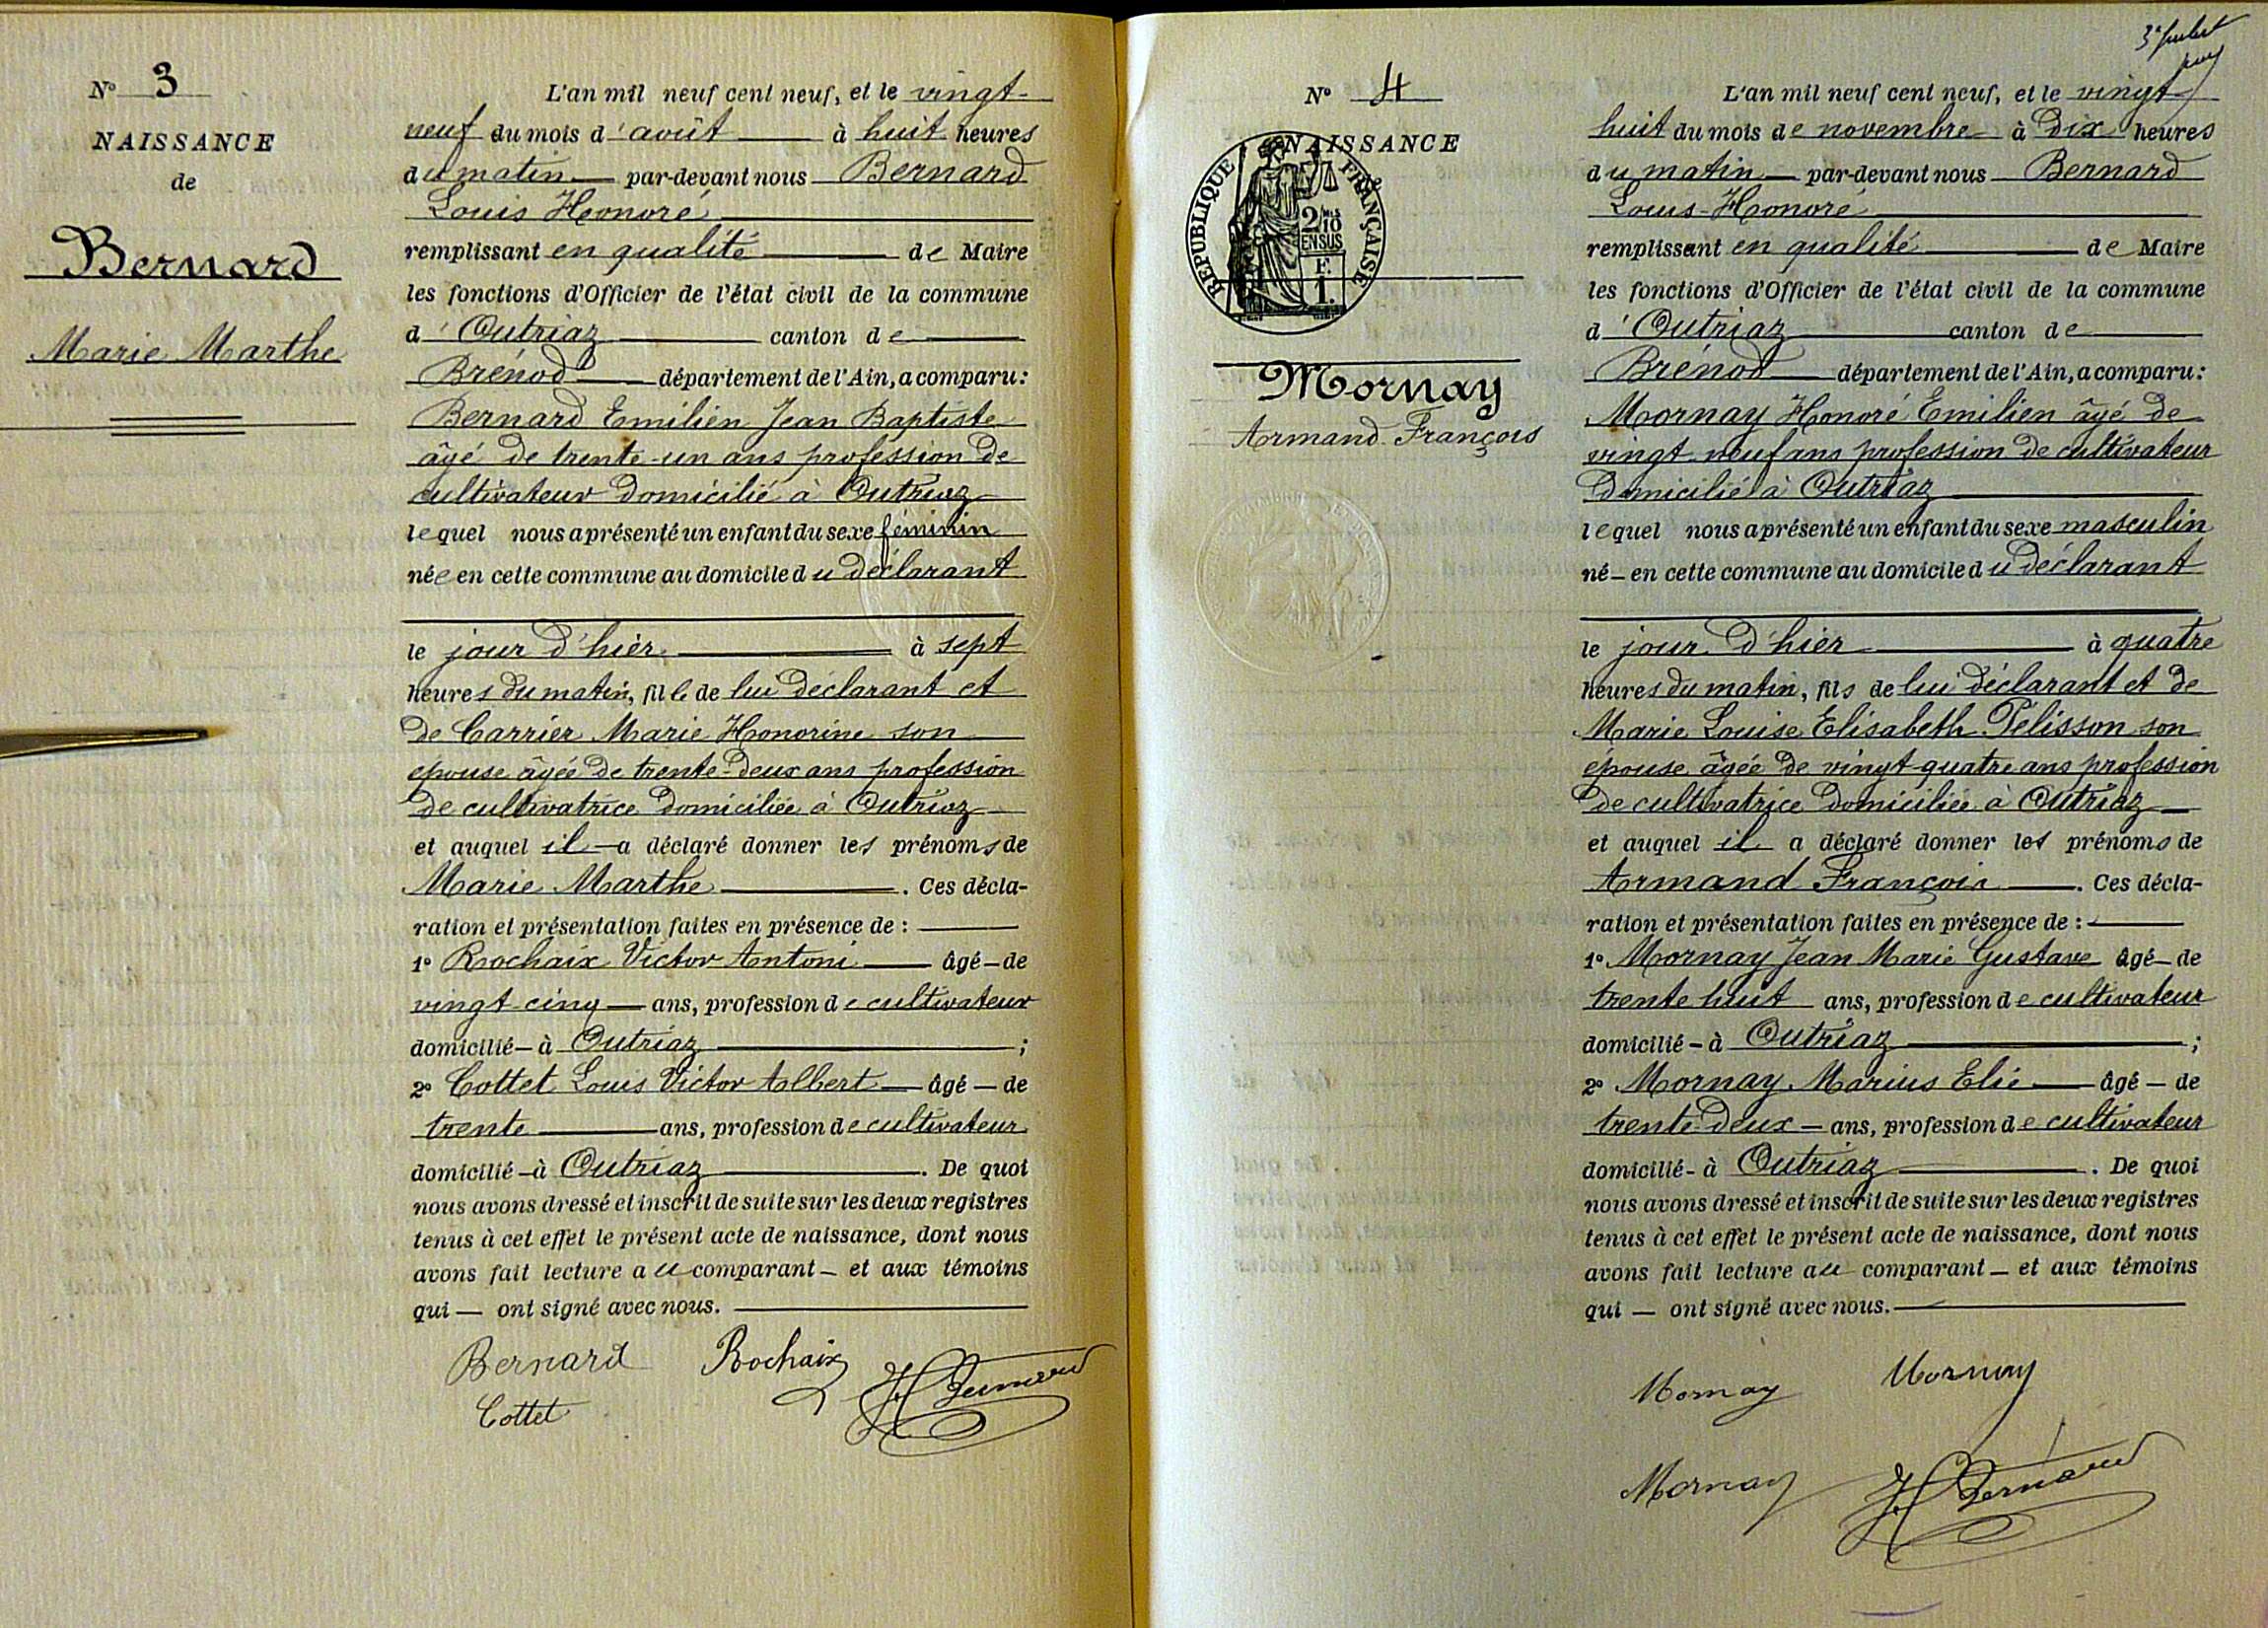 N° 3
NAISSANCE
de
Bernard
Marie Marthe
L'an mil neuf cent neuf, et le vingt-
neuf du mois d'août à huit heures
du matin par-devant nous Bernard
Louis Honoré
remplissant en qualité de Maire
les fonctions d'Officier de l'état civil de la commune
d'Outriaz canton de
Brénod département de l'Ain, a comparu:
Bernard Emilien Jean Baptiste
âgé de trente-un ans profession de
cultivateur domicilié à Outriaz
lequel nous a présenté un enfant du sexe féminin
née en cette commune au domicile du déclarant
le jour d'hier à sept
heures du matin, fille de lui déclarant et
de Carrier Marie Honorine son
épouse âgée de trente-deux ans profession
de cultivatrice domiciliée à Outriaz
et auquel il a déclaré donner les prénoms de
Marie Marthe. Ces décla-
ration et présentation faites en présence de :
1° Rochaix Victor Antoni âgé de
vingt-cinq ans, profession de cultivateur
domicilié à Outriaz ;
2° Cottet Louis Victor Albert âgé de
trente ans, profession de cultivateur
domicilié à Outriaz. De quoi
nous avons dressé et inscrit de suite sur les deux registres
tenus à cet effet le présent acte de naissance, dont nous
avons fait lecture au comparant et aux témoins
qui ont signé avec nous.
Bernard Rochaix H Bernard
Cottet
N° 4
NAISSANCE
RÉPUBLIQUE FRANÇAISE
2/10
EN SUS
F.
1.
Mornay
Armand François
L'an mil neuf cent neuf, et le vingt
huit du mois de novembre à dix heures
du matin par-devant nous Bernard
Louis-Honoré
remplissant en qualité de Maire
les fonctions d'Officier de l'état civil de la commune
d'Outriaz canton de
Brénod département de l'Ain, a comparu:
Mornay Honoré Emilien âgé de
vingt-neuf ans profession de cultivateur
domicilié à Outriaz
lequel nous a présenté un enfant du sexe masculin
né en cette commune au domicile du déclarant
le jour d'hier à quatre
heures du matin, fils de lui déclarant et de
Marie Louise Elisabeth Pélisson son
épouse âgée de vingt-quatre ans profession
de cultivatrice domiciliée à Outriaz
et auquel il a déclaré donner les prénoms de
Armand François. Ces décla-
ration et présentation faites en présence de :
1° Mornay Jean Marie Gustave âgé de
trente huit ans, profession de cultivateur
domicilié à Outriaz ;
2° Mornay Marius Elie âgé de
trente-deux ans, profession de cultivateur
domicilié à Outriaz. De quoi
nous avons dressé et inscrit de suite sur les deux registres
tenus à cet effet le présent acte de naissance, dont nous
avons fait lecture au comparant et aux témoins
qui ont signé avec nous.
Mornay Mornay
Mornay H Bernard